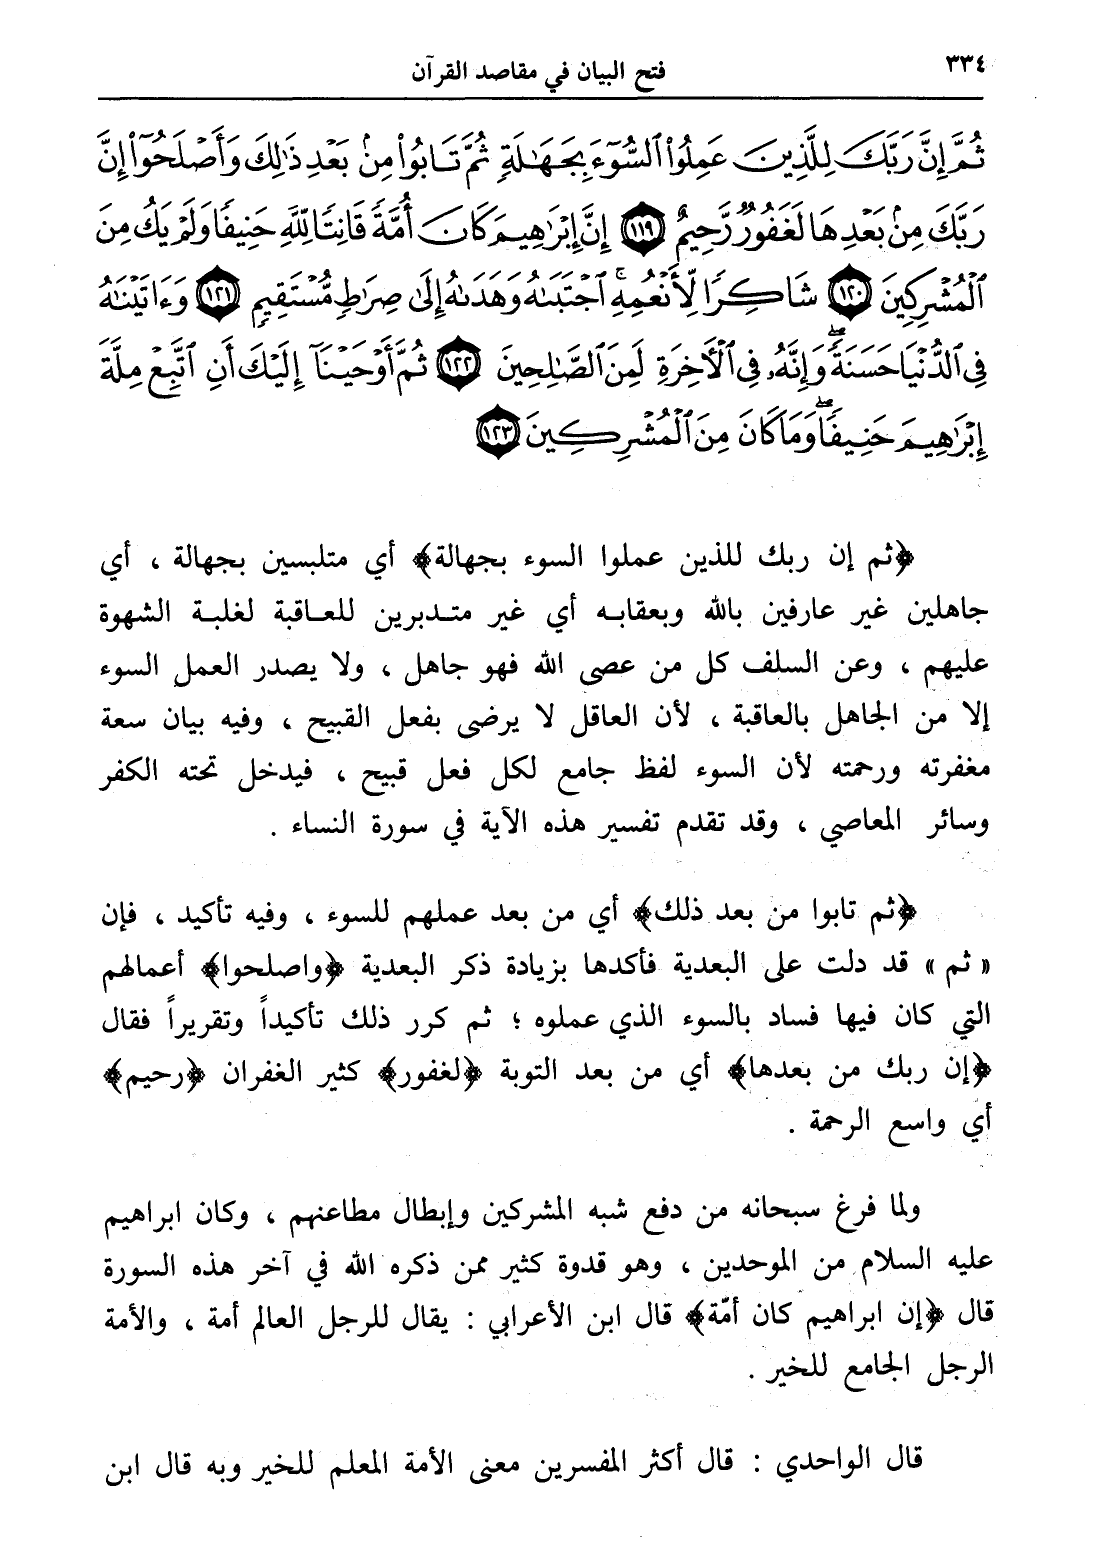 ٣٣٤
فتح البيان في مقاصد القرآن
ثُمَّ إِنَّ رَبَّكَ لِلَّذِينَ عَمِلُوا۟ ٱلسُّوٓءَ بِجَهَـٰلَةٍ ثُمَّ تَابُوا۟ مِنۢ بَعْدِ ذَٰلِكَ وَأَصْلَحُوٓا۟ إِنَّ
رَبَّكَ مِنۢ بَعْدِهَا لَغَفُورٌ رَّحِيمٌ ١١٩ إِنَّ إِبْرَٰهِيمَ كَانَ أُمَّةً قَانِتًا لِّلَّهِ حَنِيفًا وَلَمْ يَكُ مِنَ
ٱلْمُشْرِكِينَ ١٢٠ شَاكِرًا لِّأَنْعُمِهِ ۚ ٱجْتَبَىٰهُ وَهَدَىٰهُ إِلَىٰ صِرَٰطٍ مُّسْتَقِيمٍ ١٢١ وَءَاتَيْنَـٰهُ
فِى ٱلدُّنْيَا حَسَنَةً ۖ وَإِنَّهُۥ فِى ٱلْـَٔاخِرَةِ لَمِنَ ٱلصَّـٰلِحِينَ ١٢٢ ثُمَّ أَوْحَيْنَآ إِلَيْكَ أَنِ ٱتَّبِعْ مِلَّةَ
إِبْرَٰهِيمَ حَنِيفًا ۖ وَمَا كَانَ مِنَ ٱلْمُشْرِكِينَ ١٢٣
﴿ثم إن ربك للذين عملوا السوء بجهالة﴾ أي متلبسين بجهالة ، أي
جاهلين غير عارفين بالله وبعقابه أي غير متدبرين للعاقبة لغلبة الشهوة
عليهم ، وعن السلف كل من عصى الله فهو جاهل ، ولا يصدر العمل السوء
إلا من الجاهل بالعاقبة ، لأن العاقل لا يرضى بفعل القبيح ، وفيه بيان سعة
مغفرته ورحمته لأن السوء لفظ جامع لكل فعل قبيح ، فيدخل تحته الكفر
وسائر المعاصي ، وقد تقدم تفسير هذه الآية في سورة النساء .
﴿ثم تابوا من بعد ذلك﴾ أي من بعد عملهم للسوء ، وفيه تأكيد ، فإن
« ثم » قد دلت على البعدية فأكدها بزيادة ذكر البعدية ﴿واصلحوا﴾ أعمالهم
التي كان فيها فساد بالسوء الذي عملوه ؛ ثم كرر ذلك تأكيداً وتقريراً فقال
﴿إن ربك من بعدها﴾ أي من بعد التوبة ﴿لغفور﴾ كثير الغفران ﴿رحيم﴾
أي واسع الرحمة .
ولما فرغ سبحانه من دفع شبه المشركين وإبطال مطاعنهم ، وكان ابراهيم
عليه السلام من الموحدين ، وهو قدوة كثير ممن ذكره الله في آخر هذه السورة
قال ﴿إن ابراهيم كان أمّة﴾ قال ابن الأعرابي : يقال للرجل العالم أمة ، والأمة
الرجل الجامع للخير .
قال الواحدي : قال أكثر المفسرين معنى الأمة المعلم للخير وبه قال ابن